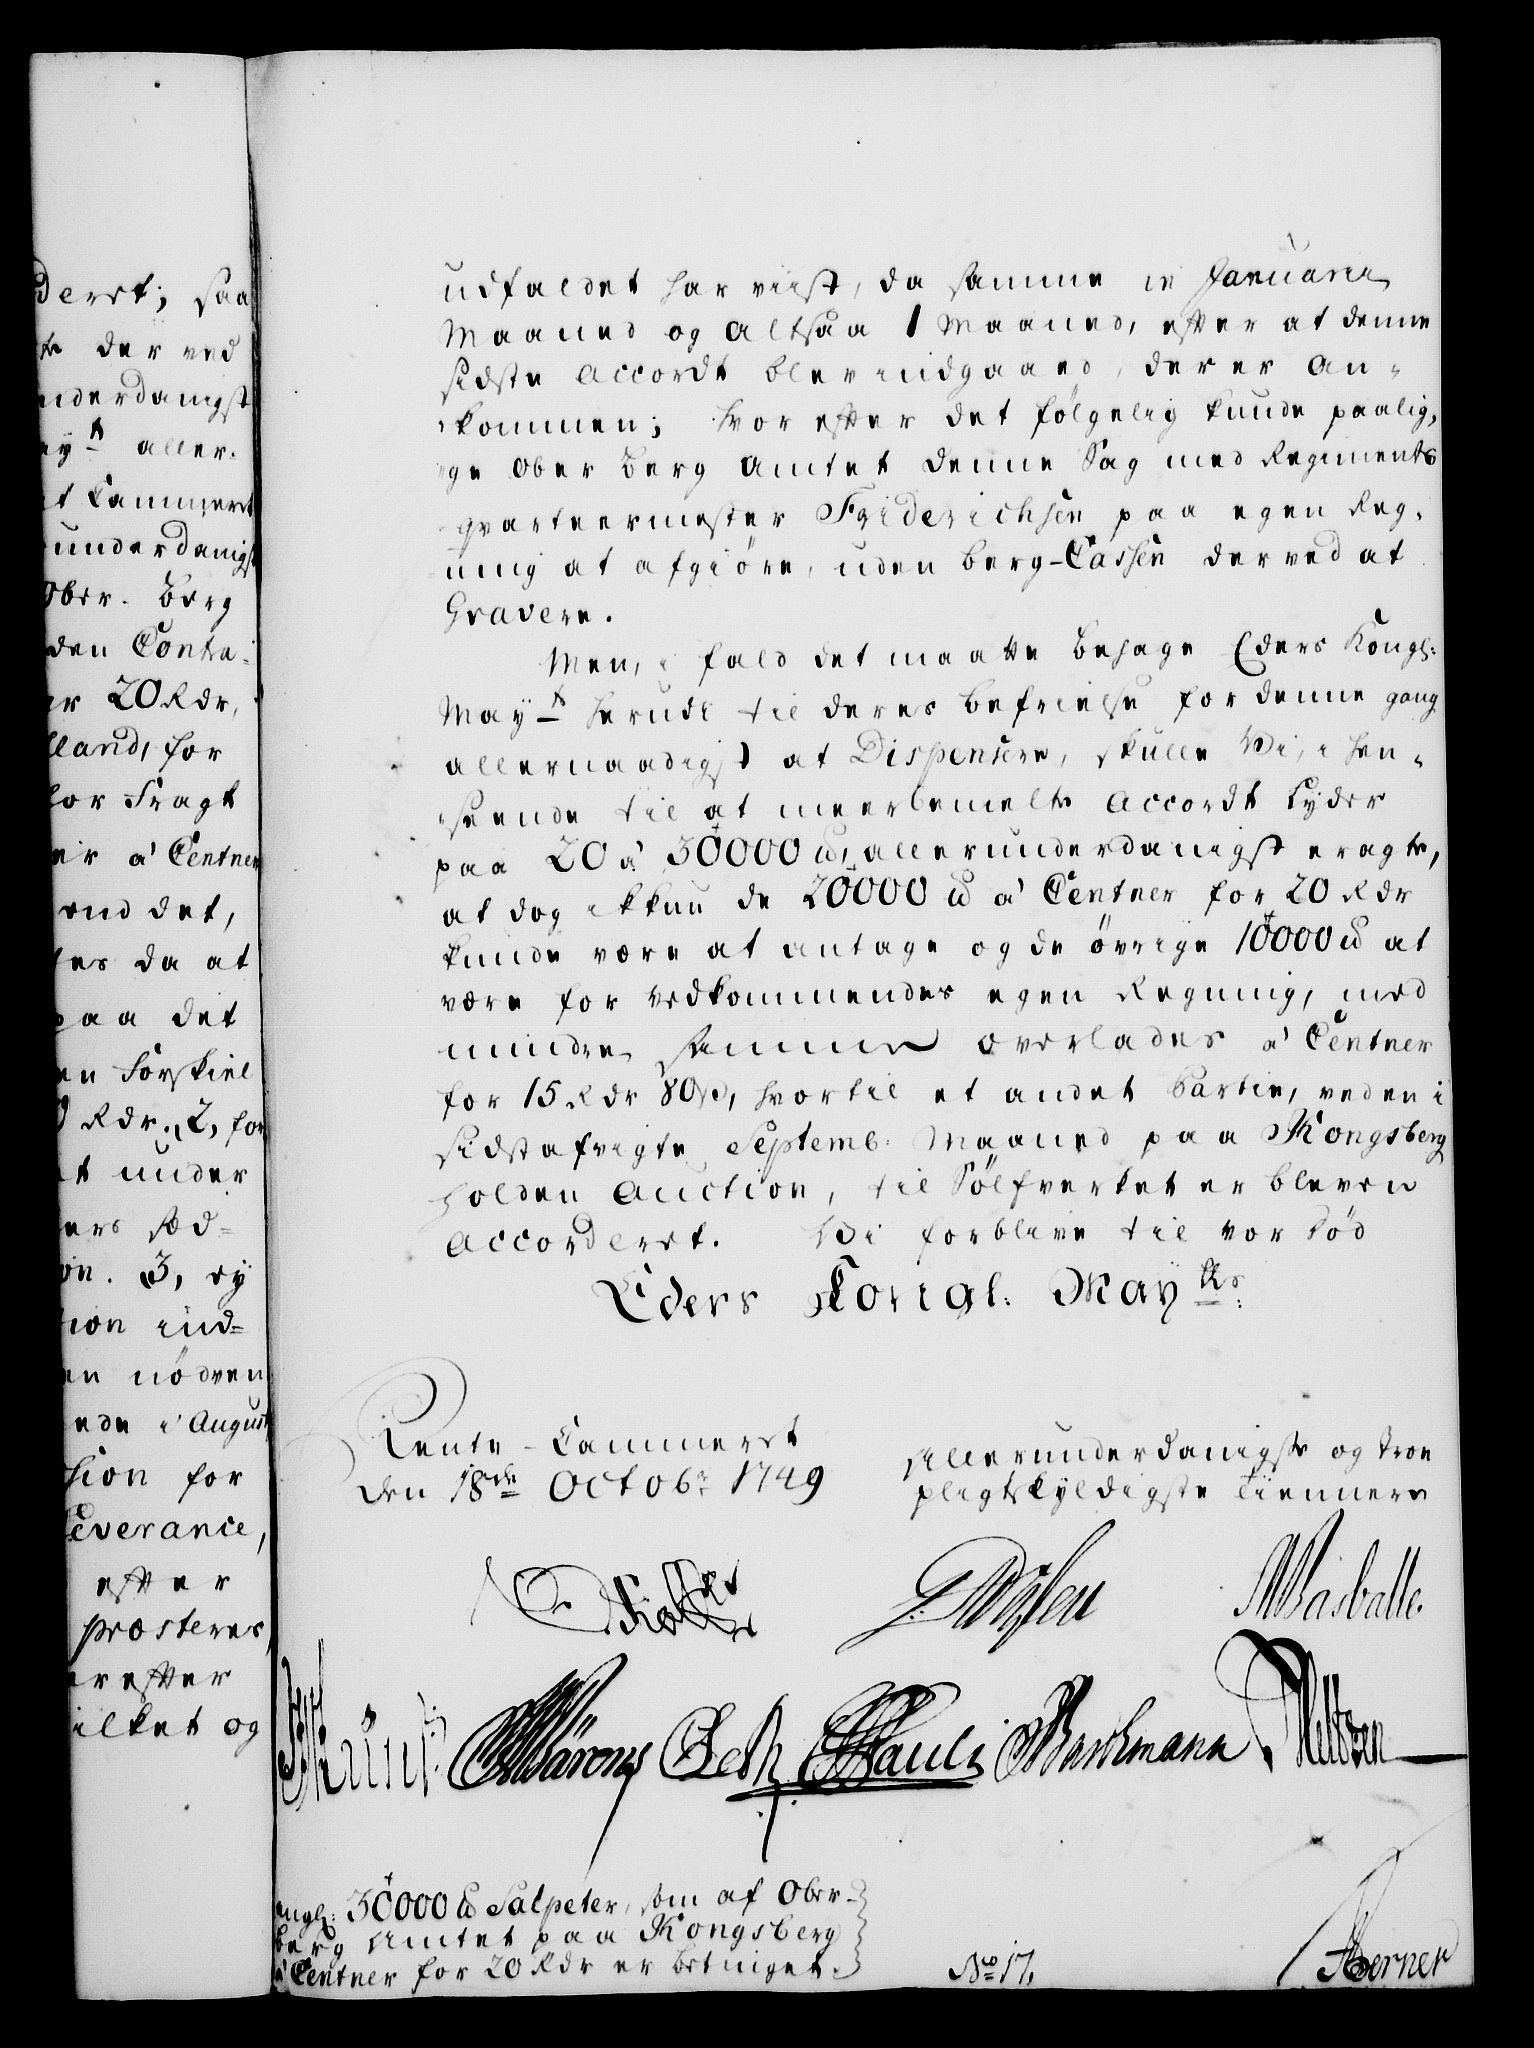 deret; saa
der ved
nderdanigst
ay<sup>t</sup> aller-
et Cammeret
runderdanigst
Ober-Berg
den Contra-
er 20 Rdr,
lland, for
for Fragt
er á Centner
end det,
tes da at
paa det
en Forskiel
Rdr. 2, for
et under
ers Sæd-
on. 3, ey
tion ind-
en nødven
ede i August
tion for
Leverance,
efter
præsteres,
erefter
ilket og
udfaldet har viist, da samme in Januarii
Maaned og altsaa 1 Maaned, efter at denne
sidste Accordt blev indgaaed, der er an-
kommen; hvorefter det følgelig kunde paalig-
ge Ober Berg Amtet denne Sag med Regiments
qvarteermester Friderichsen paa egen Reg-
ning at afgiøre, uden Berg-Cassen derved at
Gravere.
Men, i fald det maatte behage Eders Kongl:
May<sup>t</sup> herudi til deres befrielse for denne gang
allernaadigst at Dispensere, skulle Vi, i hen-
seende til at meerbemelte Accordt lyder
paa 20 á 30000 ℔, allerunderdanigst eragte,
at dog ikkun de 20000 ℔ á Centner for 20 Rdr
kunde være at antage og de øvrige 10000 ℔ at
være for vedkommendes egen Regning, med
mindre samme overlades á Centner
for 15 Rdr 80 s, hvortil et andet Partie, ved en i
sidstafvigte Septemb: Maaned paa Kongsberg
holden Auction, til Sølfverket er bleven
accorderet. Vi forblive til vor død
Eders Konigl: May<sup>ts</sup>:
Rente-Cammeret
den 18<sup>de</sup> Octobr: 1749
Allerunderdanigste og troe
pligtskyldigste Tiennere
Wasballe.
Pauli
Barchmann
30000 ℔ Salpeter, som af Ober-
berg Amtet paa Kongsberg
á Centner for 20 Rdr er betinget.
No 17.
Berner